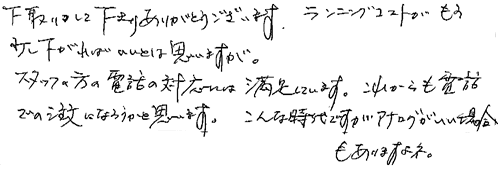 下取りして下さりありがとうございます。ランニングコストがもう
少し下がればいいとは思いますが。
スタッフの方の電話の対応には満足しています。これからも電話
での注文になろうかと思います。こんな時代ですがアナログがいい場合
もありますよネ。